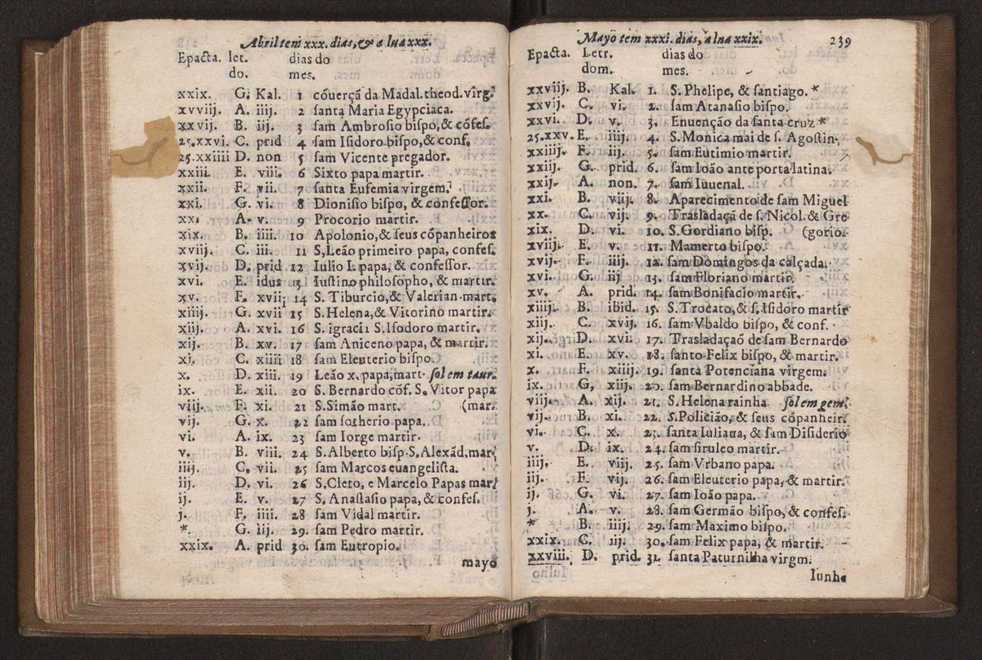 Abril tem xxx. dias, & a lua xxx.
Epacta. let. dias do
do. mes.
xxix. G. Kal. 1 cóuerçã da Madal. theod. virg.
xxviij. A. iiij. 2 santa Maria Egypciaca.
xxvij. B. iij. 3 sam Ambrosio bispo, & cófes.
25.xxvi. C. prid 4 sam Isidoro bispo, & conf.
25.xxiiii D. non 5 sam Vicente pregador.
xxiii. E. viii. 6 Sixto papa martir.
xxii. F. vii. 7 santa Eufemia virgem.
xxi. G. vi. 8 Dionisio bispo, & confessor.
xx. A. v. 9 Procorio martir.
xix. B. iiii. 10 Apolonio, & seus cópanheiros
xviij. C. iii. 11 S, Leão primeiro papa, confes.
xvij. D. prid 12 Iulio I. papa, & confessor.
xvi. E. idus 13 Iustino philosopho, & martir.
xv. F. xvii; 14 S. Tiburcio, & Valerian mart.
xiiij. G. xvii 15 S. Helena, & Vitorino martir.
xiij. A. xvi. 16 S. igraci 1 S. Isodoro martir.
xij. B. xv. 17 sam Aniceno papa, & martir.
xi. C. xiiii 18 sam Eleuterio bispo.
x. D. xiii. 19 Leão x. papa, mart. sol em taur.
ix. E. xii. 20 S. Bernardo cóf. S. Vitor papa
viij. F. xi. 21 S. Simão mart. (mar.
vij. G. x. 22 sam sotherio papa.
vi. A. ix. 23 sam Iorge martir.
v. B. viii. 24 S. Alberto bisp. S. Alexãd, mar.
iiij. C. vii. 25 sam Marcos euangelista.
iij. D. vi. 26 S. Cleto, e Marcelo Papas mar.
ij. E. v. 27 S. Anastasio papa, & confes.
j. F. iiii. 28 sam Vidal martir.
*. G. iij. 29. sam Pedro martir.
xxix. A. prid 30. sam Eutropio.
mayo
Mayo tem xxxi. dias, a lua xxix. 239
Epacta. Letr. dias do
dom. mes.
xxviij. B. Kal. 1. S. Phelipe, & santiago. *
xxvij. C. vi. 2. sam Atanasio bispo.
xxvi. D. v. 3. Enuenção da santa cruz *
25.xxv. E. iiij. 4. S. Monica mai de s. Agostin.
xxiiij. F. iij. 5. sam Eutimio martir.
xxiij. G. prid. 6. sam Ioão ante porta latina.
xxij. A. non. 7. sam Iuuenal.
xxi. B. viij. 8. Aparecimento de sam Miguel
xx. C. vij. 9. Trasladaçã de s. Nicol. & Gre
xix. D. vi. 10. S. Gordiano bisp. (gorio.
xviij. E. v. 11. Mamerto bispo.
xvij. F. iiij. 12. sam Domingos da calçada.
xvi. G. iij 13. sam Floriano martir.
xv. A. prid. 14. sam Bonifacio martir.
xiiij. B. ibid. 15. S. Trocato, & s. Isidoro martir
xiij. C. xvij. 16. sam Vbaldo bispo, & conf.
xij. D. xvi. 17. Trasladaçaõ de sam Bernardo
xi. E. xv. 18. santo Felix bispo, & martir.
x. F. xiiij. 19. santa Potenciana virgem.
ix. G. xiij. 20. sam Bernardino abbade.
viij. A. xij. 21. S. Helena rainha sol em gem.
vij. B. xi. 22. S. Policião, & seus cópanheir.
vi. C. x. 23. santa Iuliana, & sam Disiderio
v. D. ix. 24. sam siruleo martir.
iiij. E. viij. 25. sam Vrbano papa.
iij. F. vij. 26. sam Eleuterio papa, & martir.
ij. G. vi. 27. sam Ioão papa.
j. A. v. 28. sam Germão bispo, & confes.
* B. iiij. 29. sam Maximo bispo.
xxix. C. iij. 30. sam Felix papa, & martir.
xxviii. D. prid. 31. santa Paturnilha virgm.
Iunho